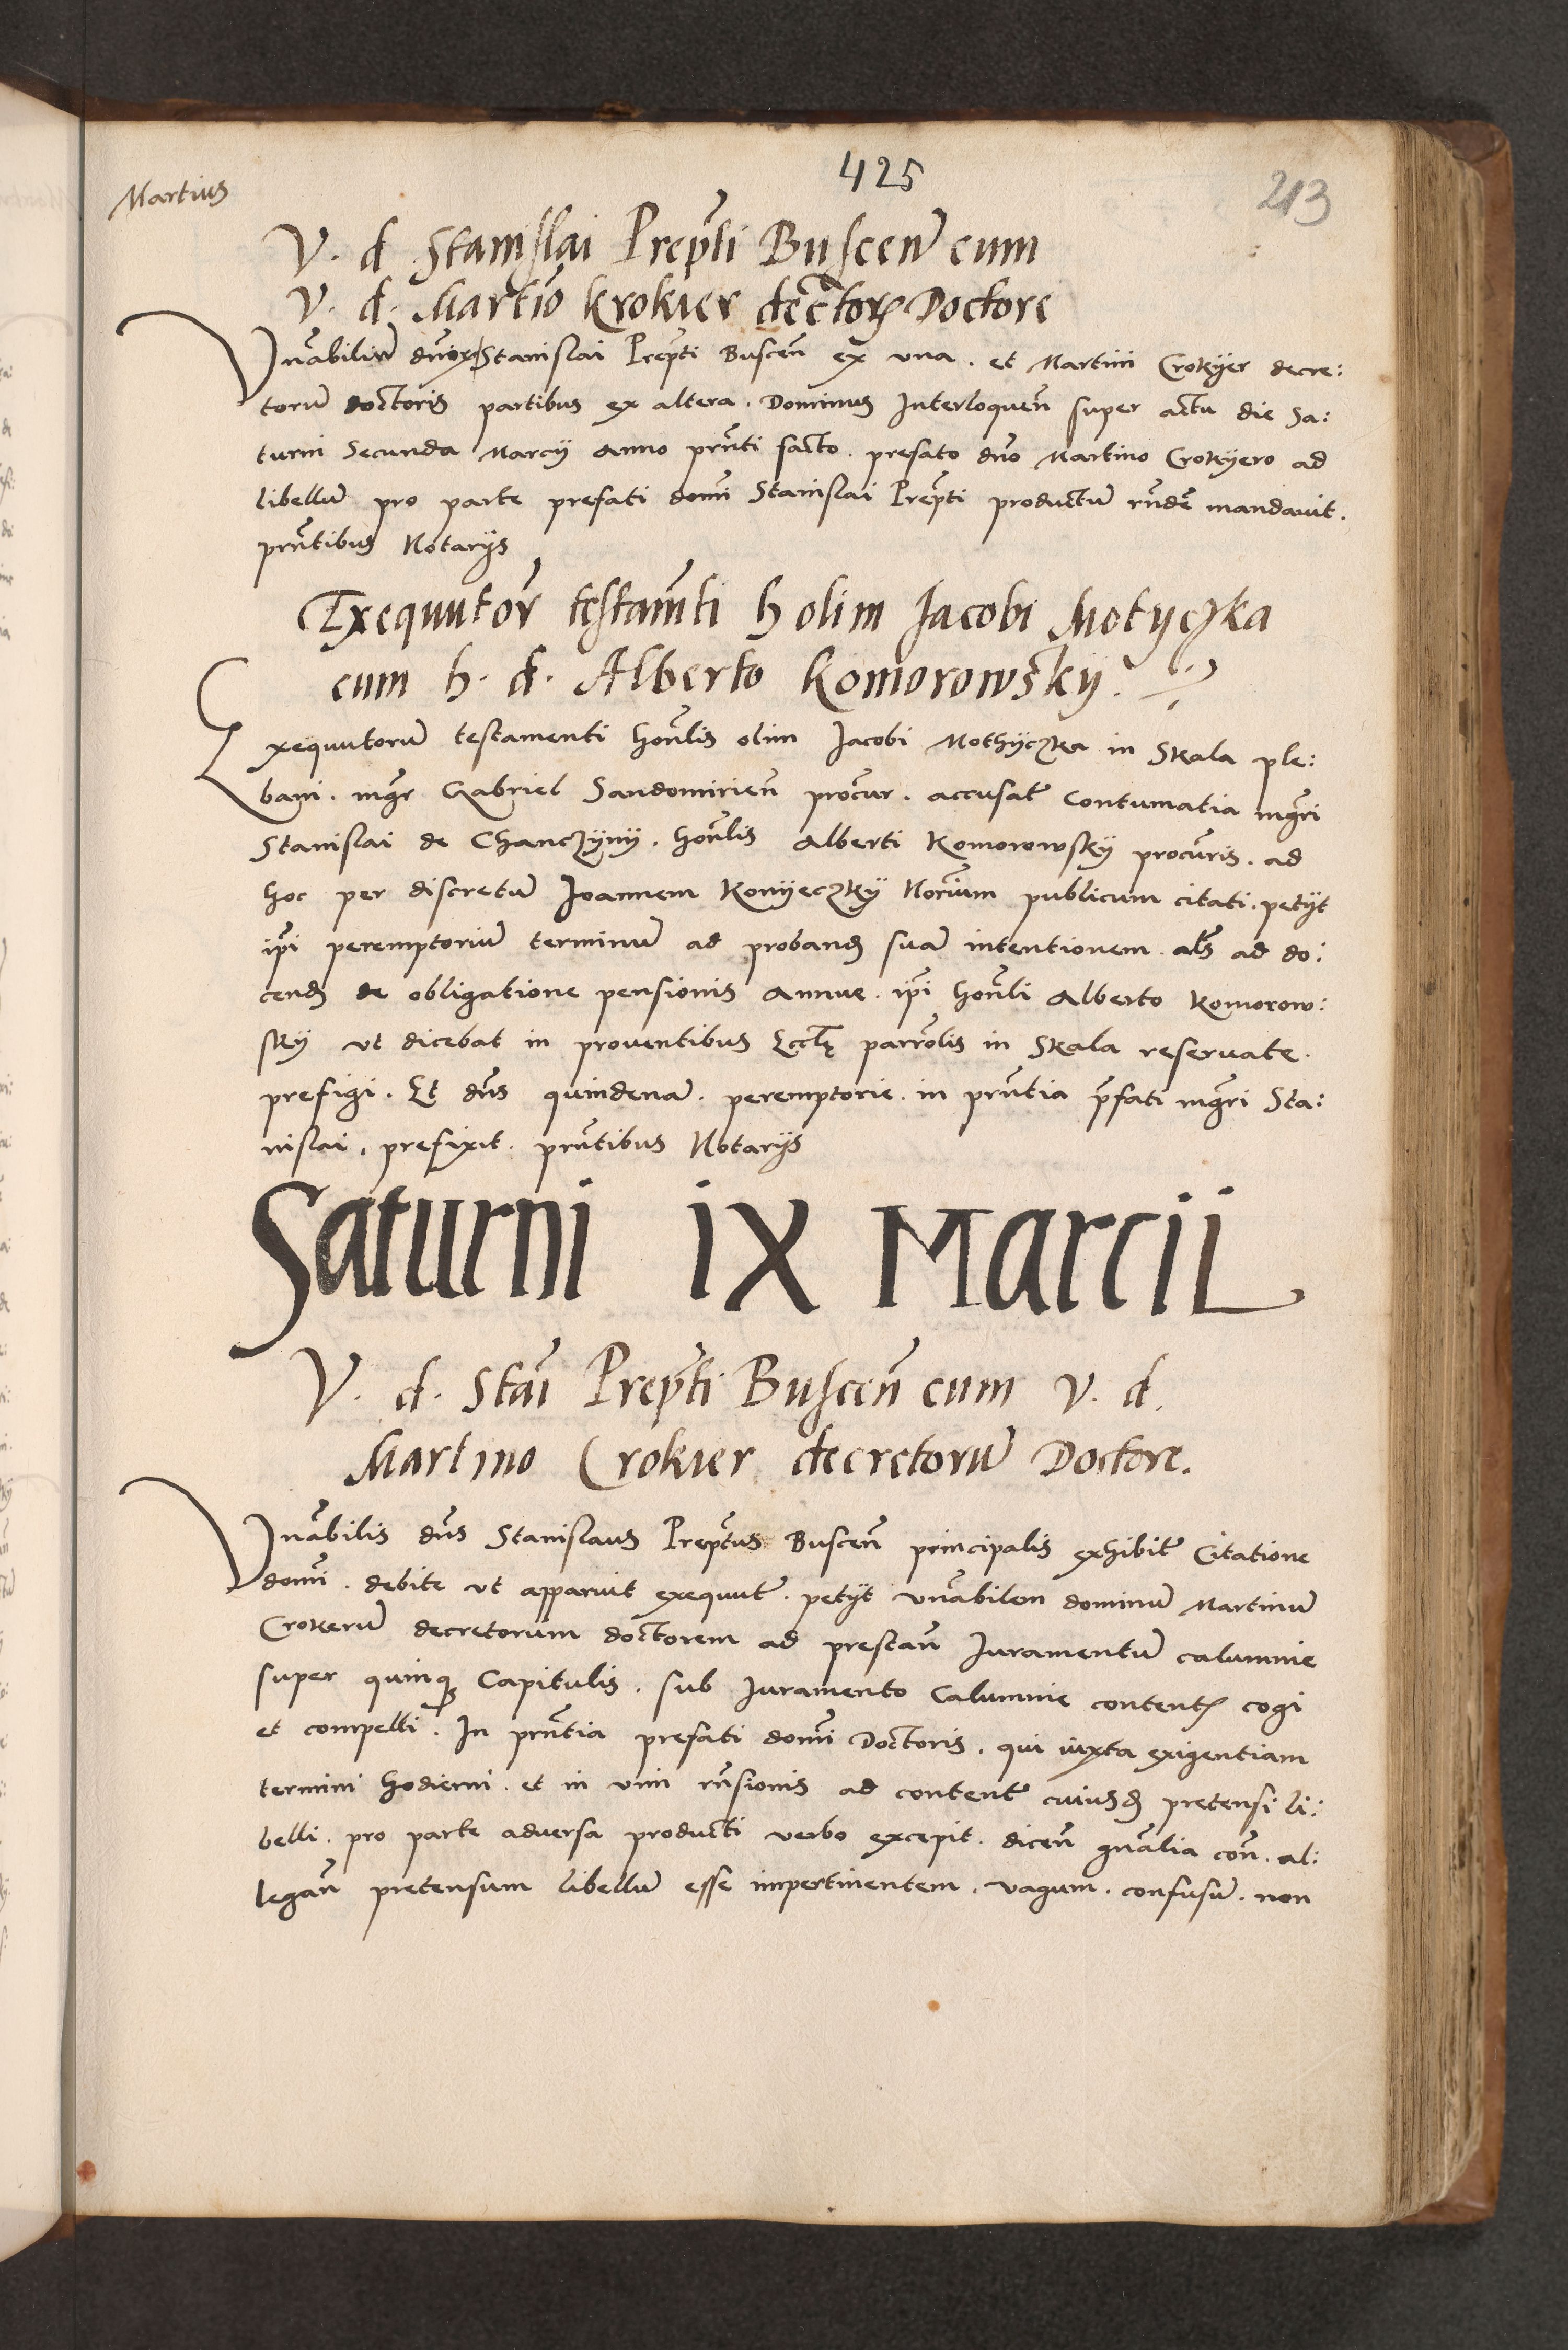 425
213
Martius
V. d. Stanislai Prep̃ti Buscen̄ cum
V. d. Martīo Krokier dec̃torꝝ Doctore
Vn̄abiliū dn̄orꝝ Stanislai Prep̃ti Buscen̄ ex vna. et Martini Crokyer decre:
torū doctoris partibus ex altera. Dominus Interloquen̄ super actu die Sa:
turni Secunda Marcÿ Anno prn̄ti facto. prefato dn̄o Martino Crokyero ad
libellū pro parte prefati domĩ Stanislai Prep̃ti productū rn̄dẽ mandauit.
prn̄tibus Notarÿs
Exequutor̃ testam̃ti h olim Jacobi Motyczka
cum h. d. Alberto Komorowsky.
Exequutorū testamenti hon̄lis olim Jacobi Mothyczka in Skala ple:
bani. mg̃r Gabriel Sandomirien̄ proc̃ur. accusat̃ contumatia mg̃ri
Stanislai de Chanczyny. hon̄lis Alberti Komorowsky proc̃uris. ad
hoc per discretū Joannem Konyeczky Nor̃ium publicum citati. petÿt
ip̃i peremptoriū terminū ad probanḍ suā intentionem. al̃s ad do:
cenḍ de obligatione pensionis Annue. ip̃i hon̄li Alberto Komorow:
sky vt dicebat in prouentibus Eccl̃ę parro̅lis in Skala reseruate.
prefigi. Et dn̄s quindenā. peremptorie. in prn̄tia p̃fati mg̃ri Sta:
nislai. prefixit. prn̄tibus Notarÿs
Saturni IX Marcii
V. d. Stañi Prep̃ti Buscen̄ cum V. d.
Martino Crokier decretorū Doctore.
Vn̄abilis dn̄s Stanislaus Prep̃tus Buscen̄ principalis exhibit̃ Citatione
domĩ. debite vt apparuit exequut̃. petÿt vn̄abilem dominū Martinū
Crokerū decretorum doctorem ad prestan̄ Iuramentū calumnie
super quinqꝫ Capitulis. sub Iuramento Calumnie contentꝭ cogi
et compelli. In prn̄tia prefati domĩ Doctoris. qui iuxta exigentiam
termini hodierni. et in vim rn̄sionis ad content̃ cuiusḍ pretensi li:
belli. pro parte aduersa producti verbo excepit. dicen̄ gn̄alia con̄. al:
legan̄ pretensum libellū esse impertinentem. vagum. confusū. non